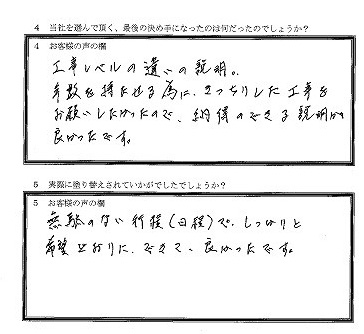 4 当社を選んで頂く、最後の決め手になったのは何だったのでしょうか？
4 お客様の声の欄
工事レベルの違いの説明。
年数を持たせる為に、きっちりした工事を
お願いしたかったので、納得のできる説明が
良かったです。
5 実際に塗り替えされていかがでしたでしょうか？
5 お客様の声の欄
無駄のない行程(日程)で、しっかりと
希望どおりに、できて、良かったです。